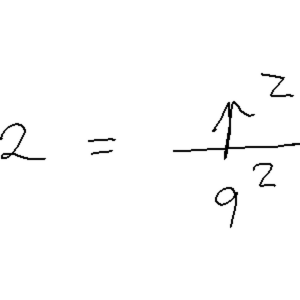 2 = ↑² / 9²